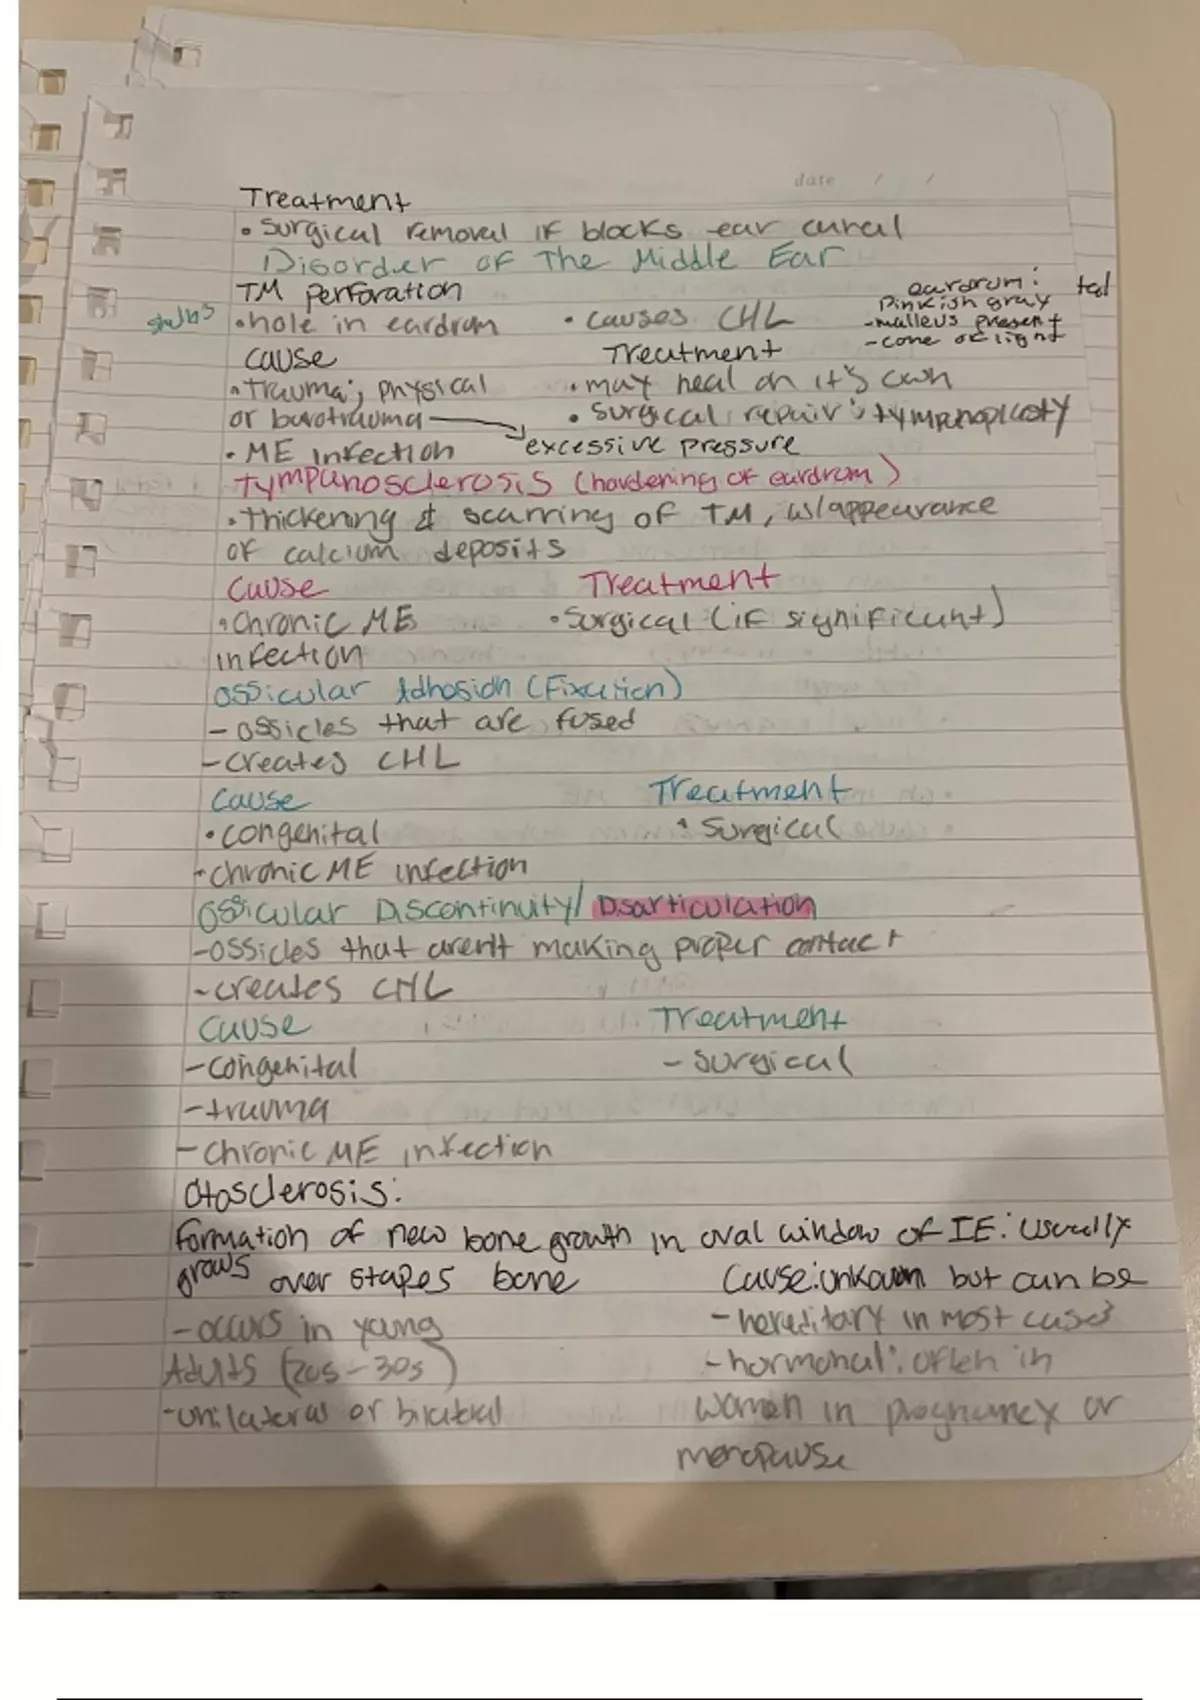 date / /
Treatment
• Surgical removal if blocks ear canal
Disorder of The Middle Ear
TM perforation
eardrum:
pinkish gray
-malleus present
-cone of light
• hole in eardrum • causes CHL
Cause Treatment
• Trauma; physical • may heal on it's own
or barotrauma • surgical repair: tympanoplasty
• ME infection excessive pressure
Tympanosclerosis (hardening of eardrum)
• thickening & scarring of TM, w/appearance
of calcium deposits
Cause Treatment
• Chronic ME • Surgical (if significant)
infection
Ossicular Adhosion (Fixation)
- ossicles that are fused
- creates CHL
Cause Treatment
• congenital • Surgical
• chronic ME infection
Ossicular Discontinuity/ Disarticulation
-ossicles that aren't making proper contact
-creates CHL
Cause Treatment
-congenital - surgical
-trauma
- chronic ME infection
Otosclerosis:
formation of new bone growth in oval window of IE: usually
grows over stapes bone Cause: unknown but can be
-occurs in young - hereditary in most cases
Adults (20s-30s) - hormonal: often in
-unilateral or women in pregnancy or
menopause